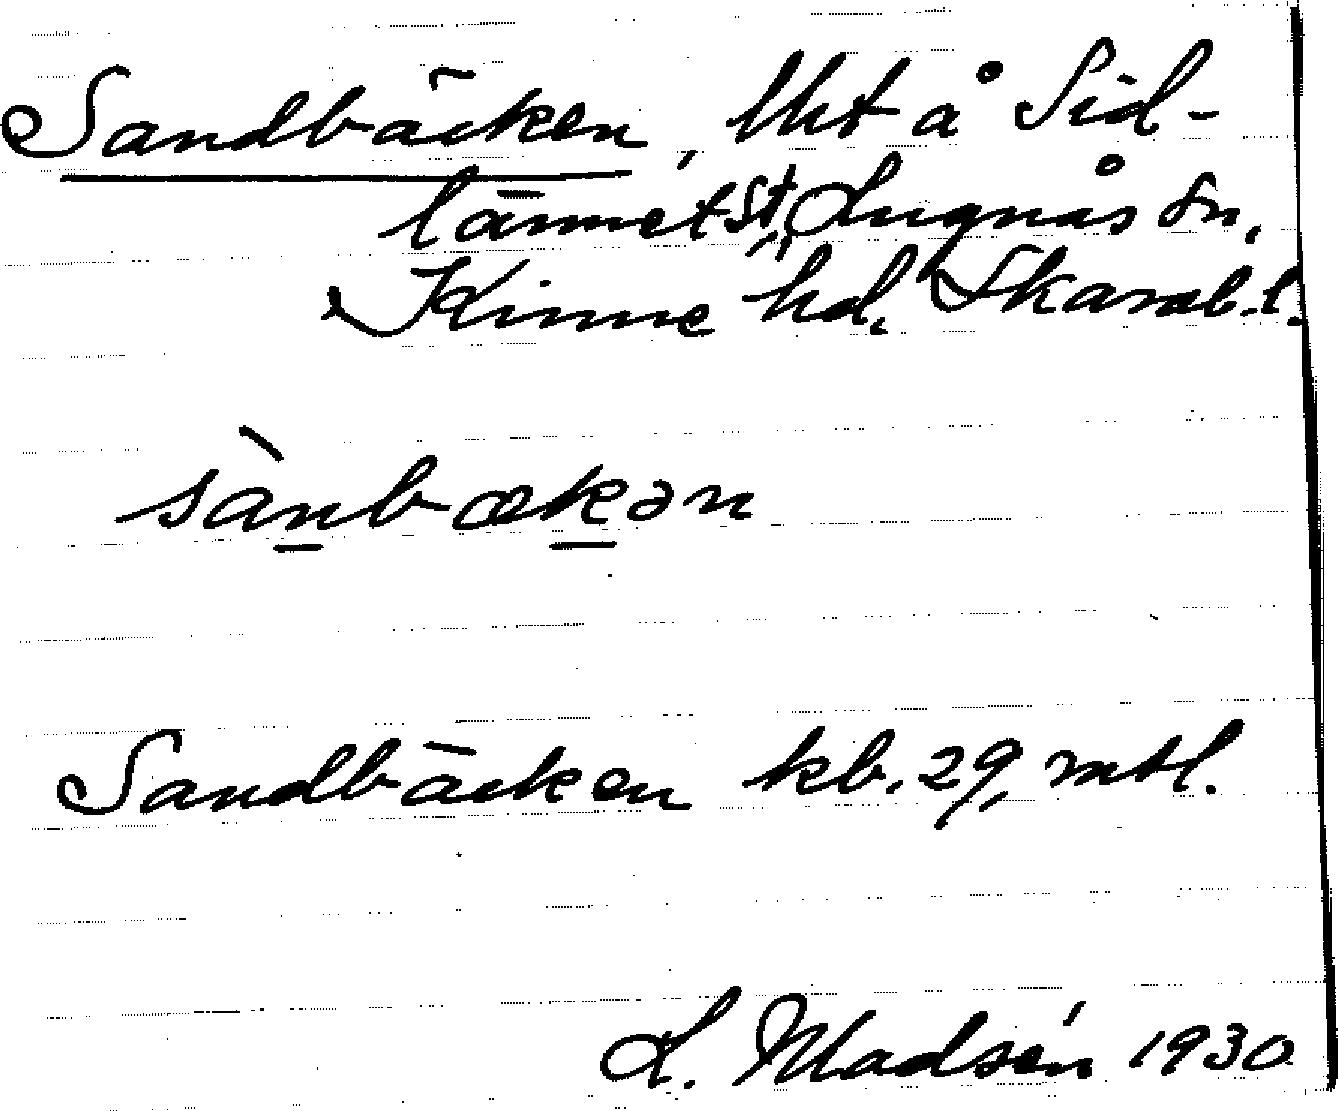 Sandbäcken, lht å Sid-
lännet St, Lugnås sn,
Kinne hd, Skarab.l.
sànbækən
Sandbäcken kb. 29, mtl.
L. Madsén 1930